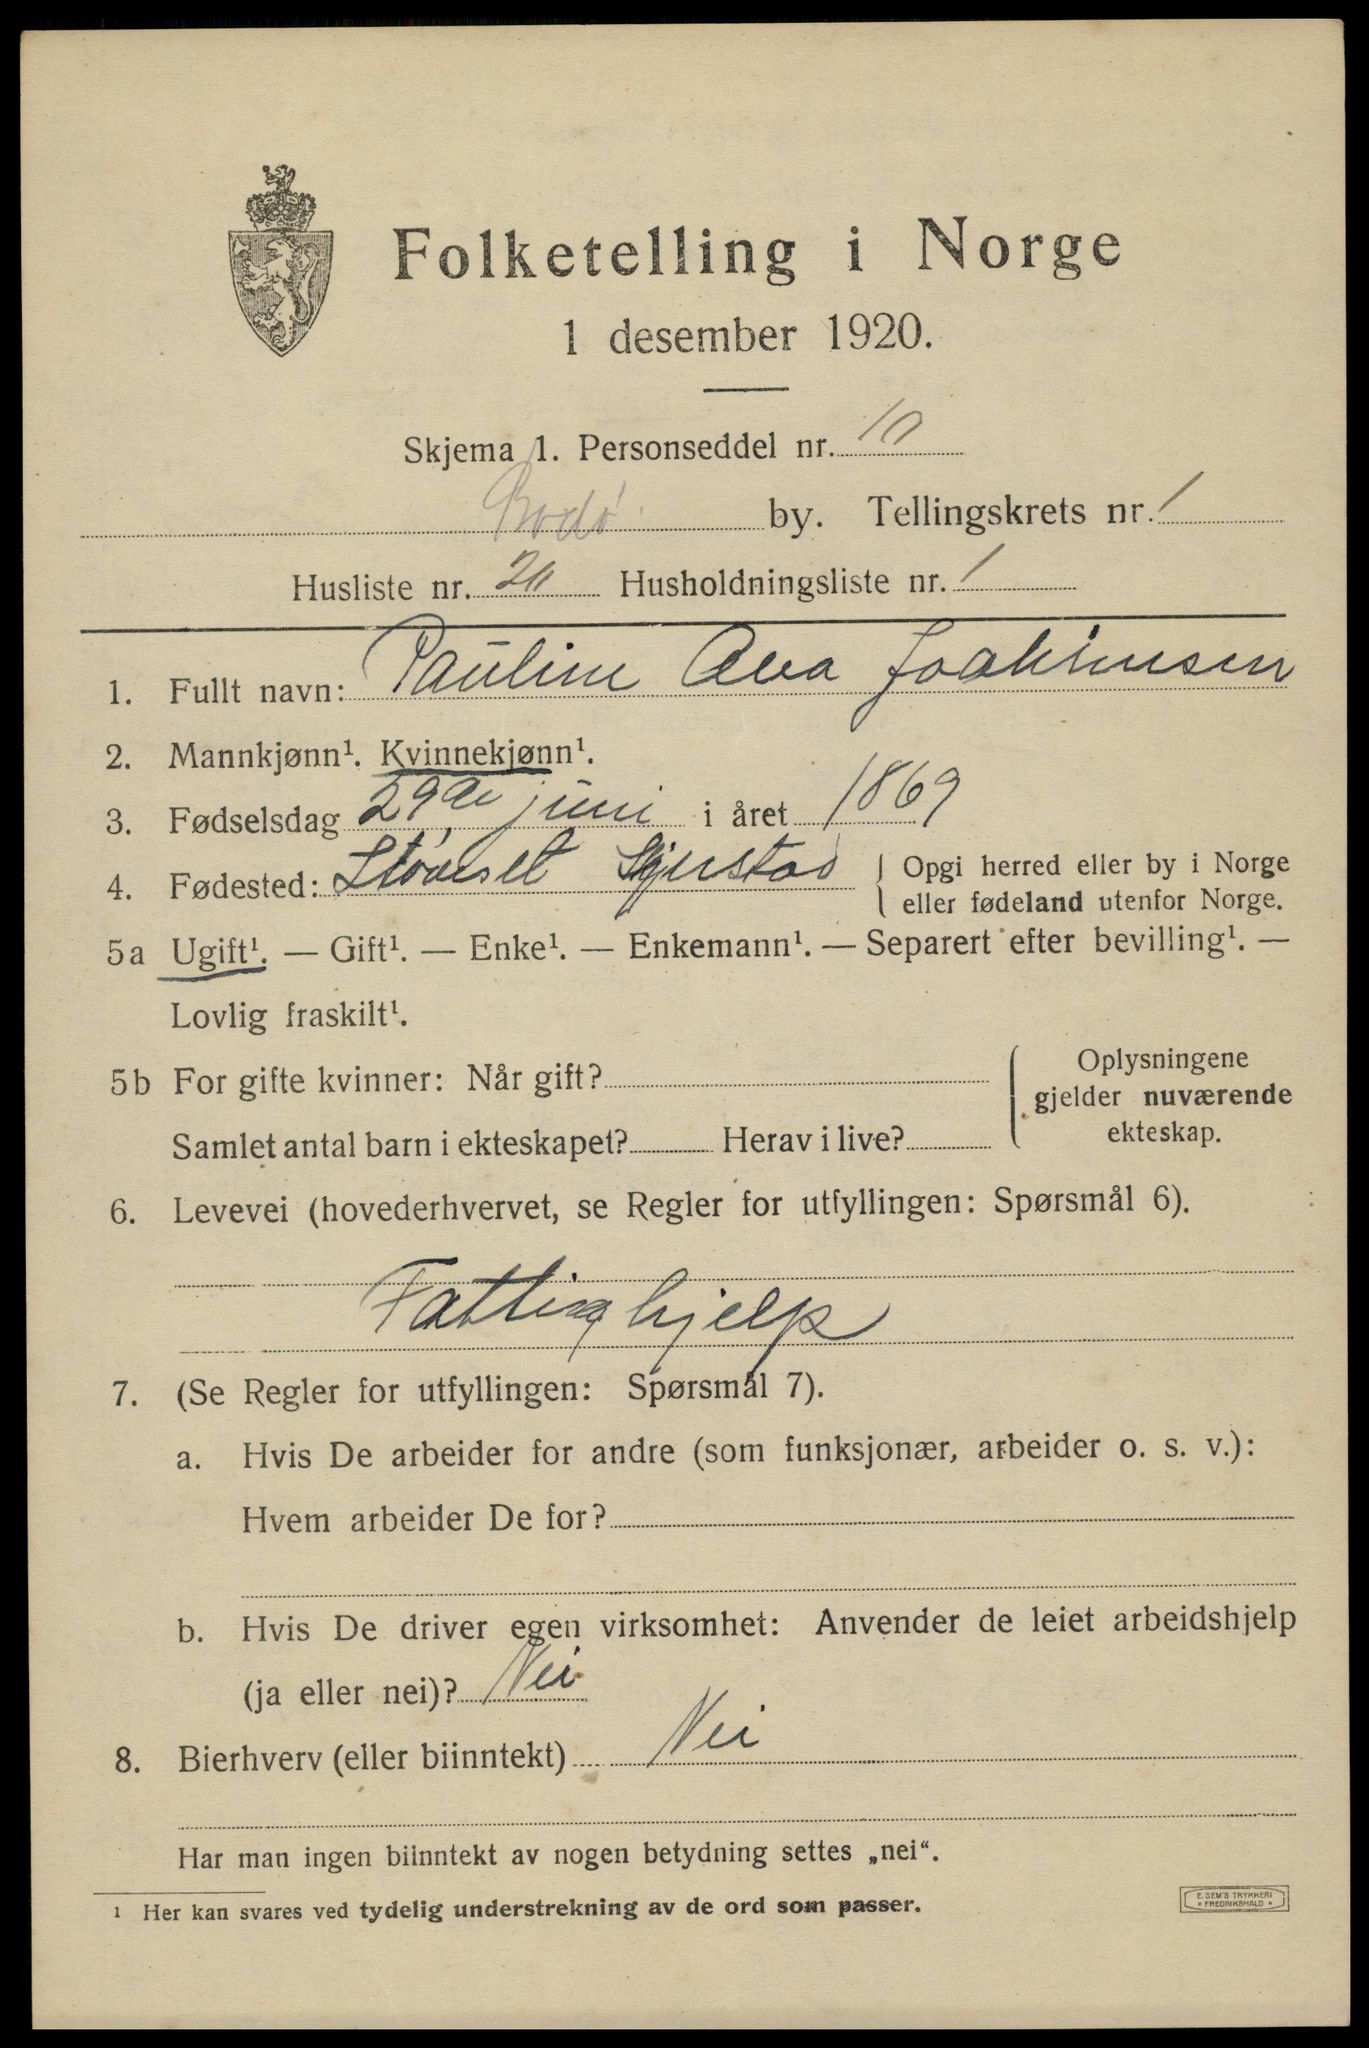 Folketelling i Norge
1 desember 1920.
Skjema 1. Personseddel nr. 10
Bodø by. Tellingskrets nr. 1
Husliste nr. 20 Husholdningsliste nr. 1
1. Fullt navn: Pauline Ava Joakimsen
2. Mannkjønn¹. Kvinnekjønn¹.
3. Fødselsdag 29de juni i året 1869
4. Fødested: Støvset Skjerstad { Opgi herred eller by i Norge
eller fødeland utenfor Norge.
5a Ugift¹. — Gift¹. — Enke¹. — Enkemann¹. — Separert efter bevilling¹. —
Lovlig fraskilt¹.
5b For gifte kvinner: Når gift?
Samlet antal barn i ekteskapet? Herav i live?
Oplysningene
gjelder nuværende
ekteskap.
6. Levevei (hovederhvervet, se Regler for utfyllingen: Spørsmål 6).
Fattighjelp
7. (Se Regler for utfyllingen: Spørsmål 7).
a. Hvis De arbeider for andre (som funksjonær, arbeider o. s. v.):
Hvem arbeider De for?
b. Hvis De driver egen virksomhet: Anvender de leiet arbeidshjelp
(ja eller nei)? Nei
8. Bierhverv (eller biinntekt) Nei
Har man ingen biinntekt av nogen betydning settes „nei“.
¹ Her kan svares ved tydelig understrekning av de ord som passer.
E. SEM'S TRYKKERI
* FREDRIKSHALD *